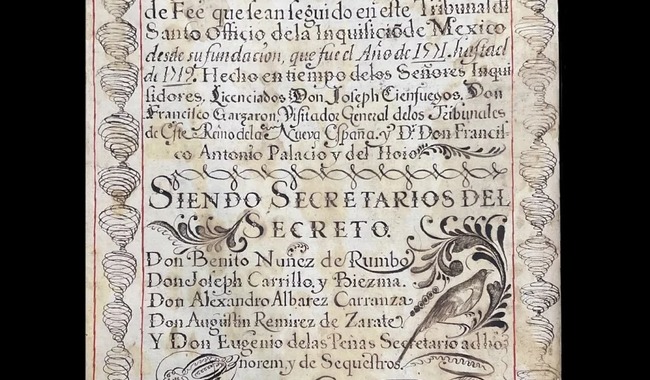 de Fee que sean seguido en este Tribunal dl
Santo Officio dela Inquisiciõ de Mexico
desde su fundacion, que fue el Año de 1571. hasta el
de 1719. Hecho en tiempo delos Señores Inqui
sidores, Licenciados Don Joseph Cienfuegos, Don
Francisco Garzaron, Visitador General delos Tribunales
de Este Reino dela Nueva España. y Dr. Don Francis-
co Antonio Palacio y del Hoio
SIENDO SECRETARIOS DEL
SECRETO.
Don Benito Nuñez de Rumbo
Don Joseph Carrillo, y Biezma.
Don Alexandro Albarez Carranza
Don Augustin Remirez de Zarate
Y Don Eugenio delas Peñas Secretario ad ho
norem, y de Sequestros.